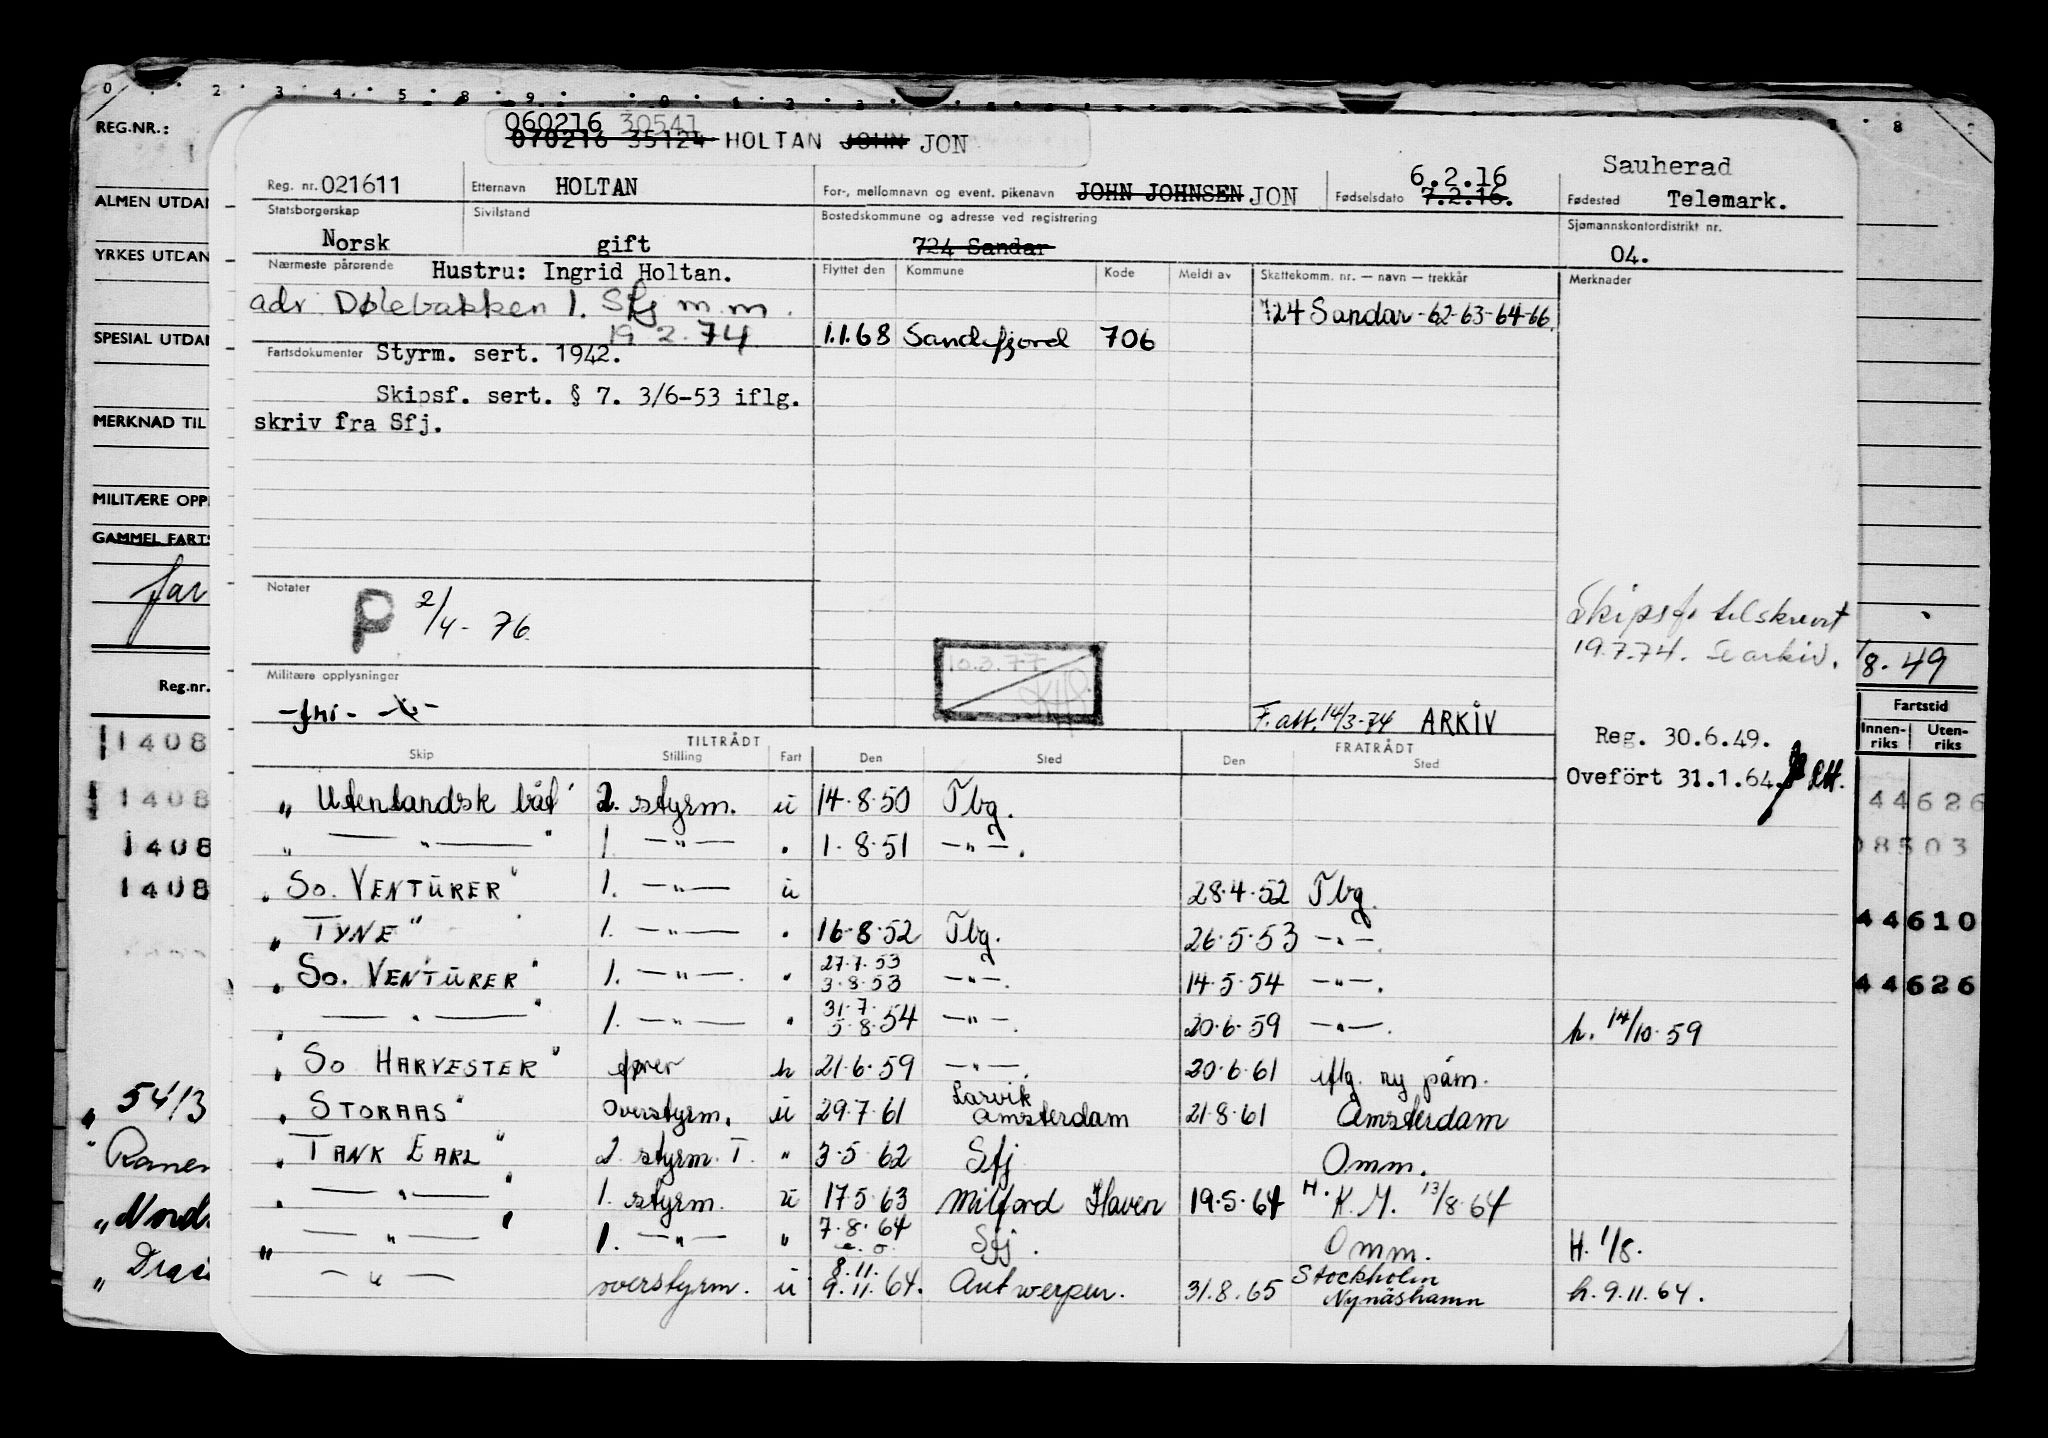 060216 30541
070216 35124 HOLTAN JOHN JON
Reg. nr. 021611 Etternavn HOLTAN For-, mellomnavn og event. pikenavn JOHN JOHNSEN JON Fødselsdato 6.2.16 7.2.16. Fødested Sauherad Telemark.
Statsborgerskap Norsk Sivilstand gift Bostedskommune og adresse ved registrering 724 Sandar Sjømannskontordistrikt nr. 04.
Nærmeste pårørende Hustru: Ingrid Holtan. Flyttet den Kommune Kode Meldt av Skattekomm. nr. — navn — trekkår Merknader
adr Dølebakken 1. Sfj m.m. 724 Sandar -62-63-64-66
19.2.74 1.1.68 Sandefjord 706
Fartsdokumenter Styrm. sert. 1942.
Skipsf. sert. § 7. 3/6-53 iflg.
skriv fra Sfj.
Notater
P 2/4-76
Skipsf. tilskrevet
19.7.74. Se arkiv.
10.3.77
Militære opplysninger
-fri-
F. att. 14/3-74 ARKIV
Reg. 30.6.49.
Oveført 31.1.64.
TILTRÅDT FRATRÅDT
Skip Stilling Fart Den Sted Den Sted
" Utenlandsk båt" 2. styrm. u 14.8.50 Tbg.
" — " — " 1. — " — " 1.8.51 — " —.
" So. VENTURER" 1. — " — u 28.4.52 Tbg.
" TYNE" 1. — " — " 16.8.52 Tbg. 26.5.53 — " —.
" So. VENTURER" 1. — " — " 27.7.53 3.8.53 — " —. 14.5.54 — " —.
" — " — " 1. — " — " 31.7. 5.8.54 — " —. 20.6.59 — " —. h. 14/10.59
" So HARVESTER" fører h 21.6.59 — " —. 20.6.61 iflg. ny påm.
" STORAAS" overstyrm. u 29.7.61 Larvik Amsterdam 21.8.61 Amsterdam
" TANK EARL" 2. styrm. T. " 3.5.62 Sfj Omm.
" — " — " 1. styrm. u 17.5.63 Milford Haven 19.5.64 H. K.M. 13/8.64
" — " — " 1. — " — " 7.8.64 e.o. Sfj. Omm. H. 1/8.
— " — overstyrm. u 8.11. 9.11.64. Antwerpen. 31.8.65 Stockholm Nynäshamn h. 9.11.64.
REG.NR.:
ALMEN UTDAN
YRKES UTDAN
SPESIAL UTDAN
MERKNAD TIL
MILITÆRE OPP
GAMMEL FARTS
far
Reg.nr.
1408
1408
1408
1408
5413
Ranen
Nords
8.49
Fartstid
Innen-riks Uten-riks
44626
08503
44610
44626